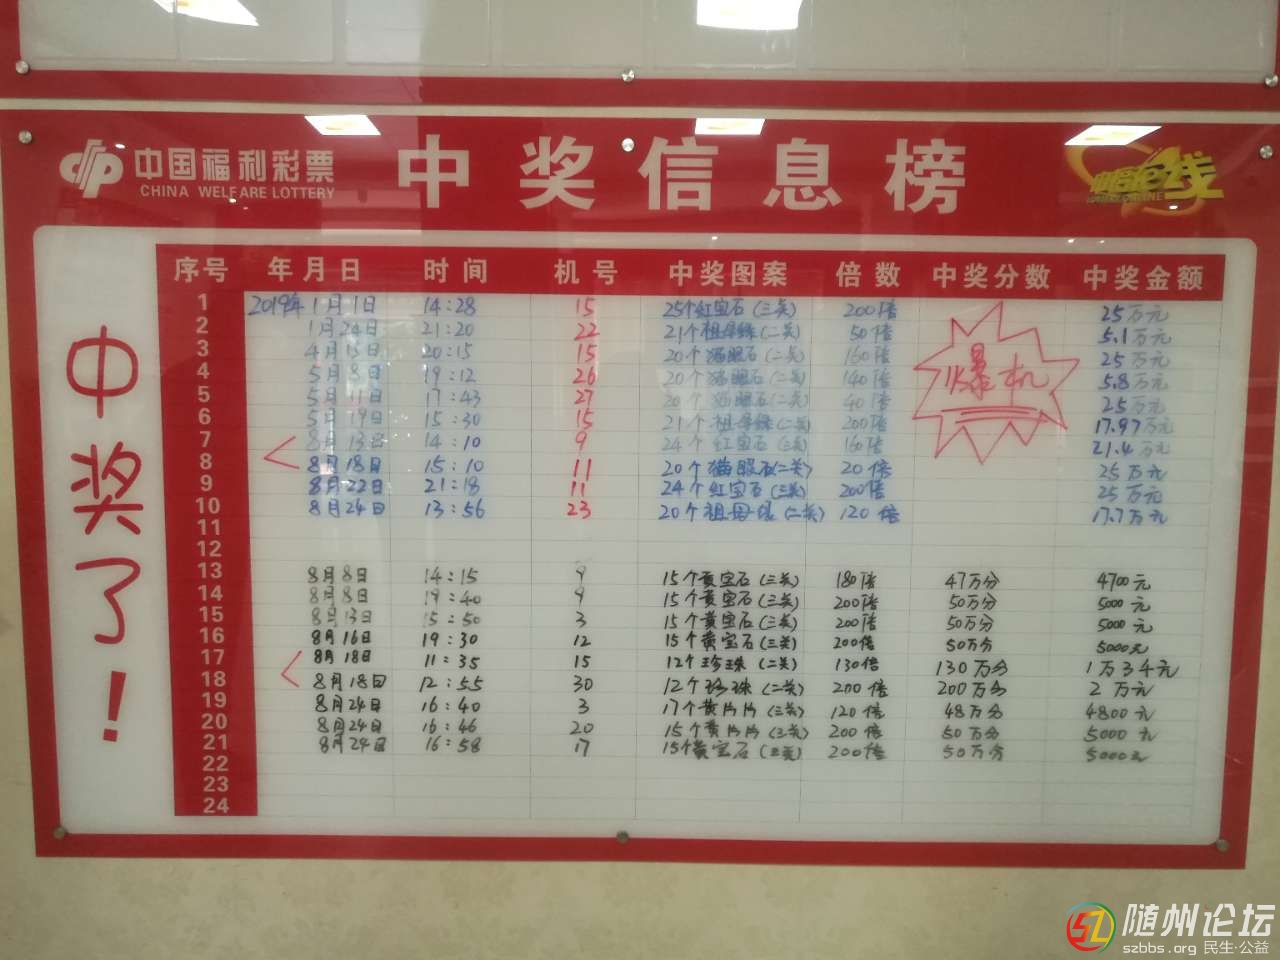 中国福利彩票
CHINA WELFARE LOTTERY
中奖信息榜
中福在线
中奖了！
序号 年月日 时间 机号 中奖图案 倍数 中奖分数 中奖金额
1 2019年1月1日 14:28 15 25个红宝石(三关) 200倍 25万元
2 1月24日 21:20 22 21个祖母绿(二关) 50倍 5.1万元
3 4月13日 20:15 15 20个猫眼石(二关) 160倍 25万元
4 5月8日 19:12 26 20个猫眼石(二关) 140倍 5.8万元
5 5月11日 17:43 27 20个猫眼石(二关) 40倍 25万元
6 5月19日 15:30 15 21个祖母绿(二关) 200倍 17.97万元
7 8月13日 14:10 9 24个红宝石(三关) 160倍 21.4万元
8 8月18日 15:10 11 20个猫眼石(二关) 20倍 25万元
9 8月22日 21:18 11 24个红宝石(三关) 200倍 25万元
10 8月24日 13:56 23 20个祖母绿(二关) 120倍 17.7万元
爆机
11
12
13 8月8日 14:15 9 15个黄宝石(三关) 180倍 47万分 4700元
14 8月8日 19:40 9 15个黄宝石(三关) 200倍 50万分 5000元
15 8月13日 15:50 3 15个黄宝石(三关) 200倍 50万分 5000元
16 8月16日 19:30 12 15个黄宝石(三关) 200倍 50万分 5000元
17 8月18日 11:35 15 12个珍珠(二关) 130倍 130万分 1万3千元
18 8月18日 12:55 30 12个珍珠(二关) 200倍 200万分 2万元
19 8月24日 16:40 3 17个黄片片(三关) 120倍 48万分 4800元
20 8月24日 16:46 20 15个黄片片(三关) 200倍 50万分 5000元
21 8月24日 16:58 17 15个黄宝石(三关) 200倍 50万分 5000元
22
23
24
随州论坛
szbbs.org 民生·公益